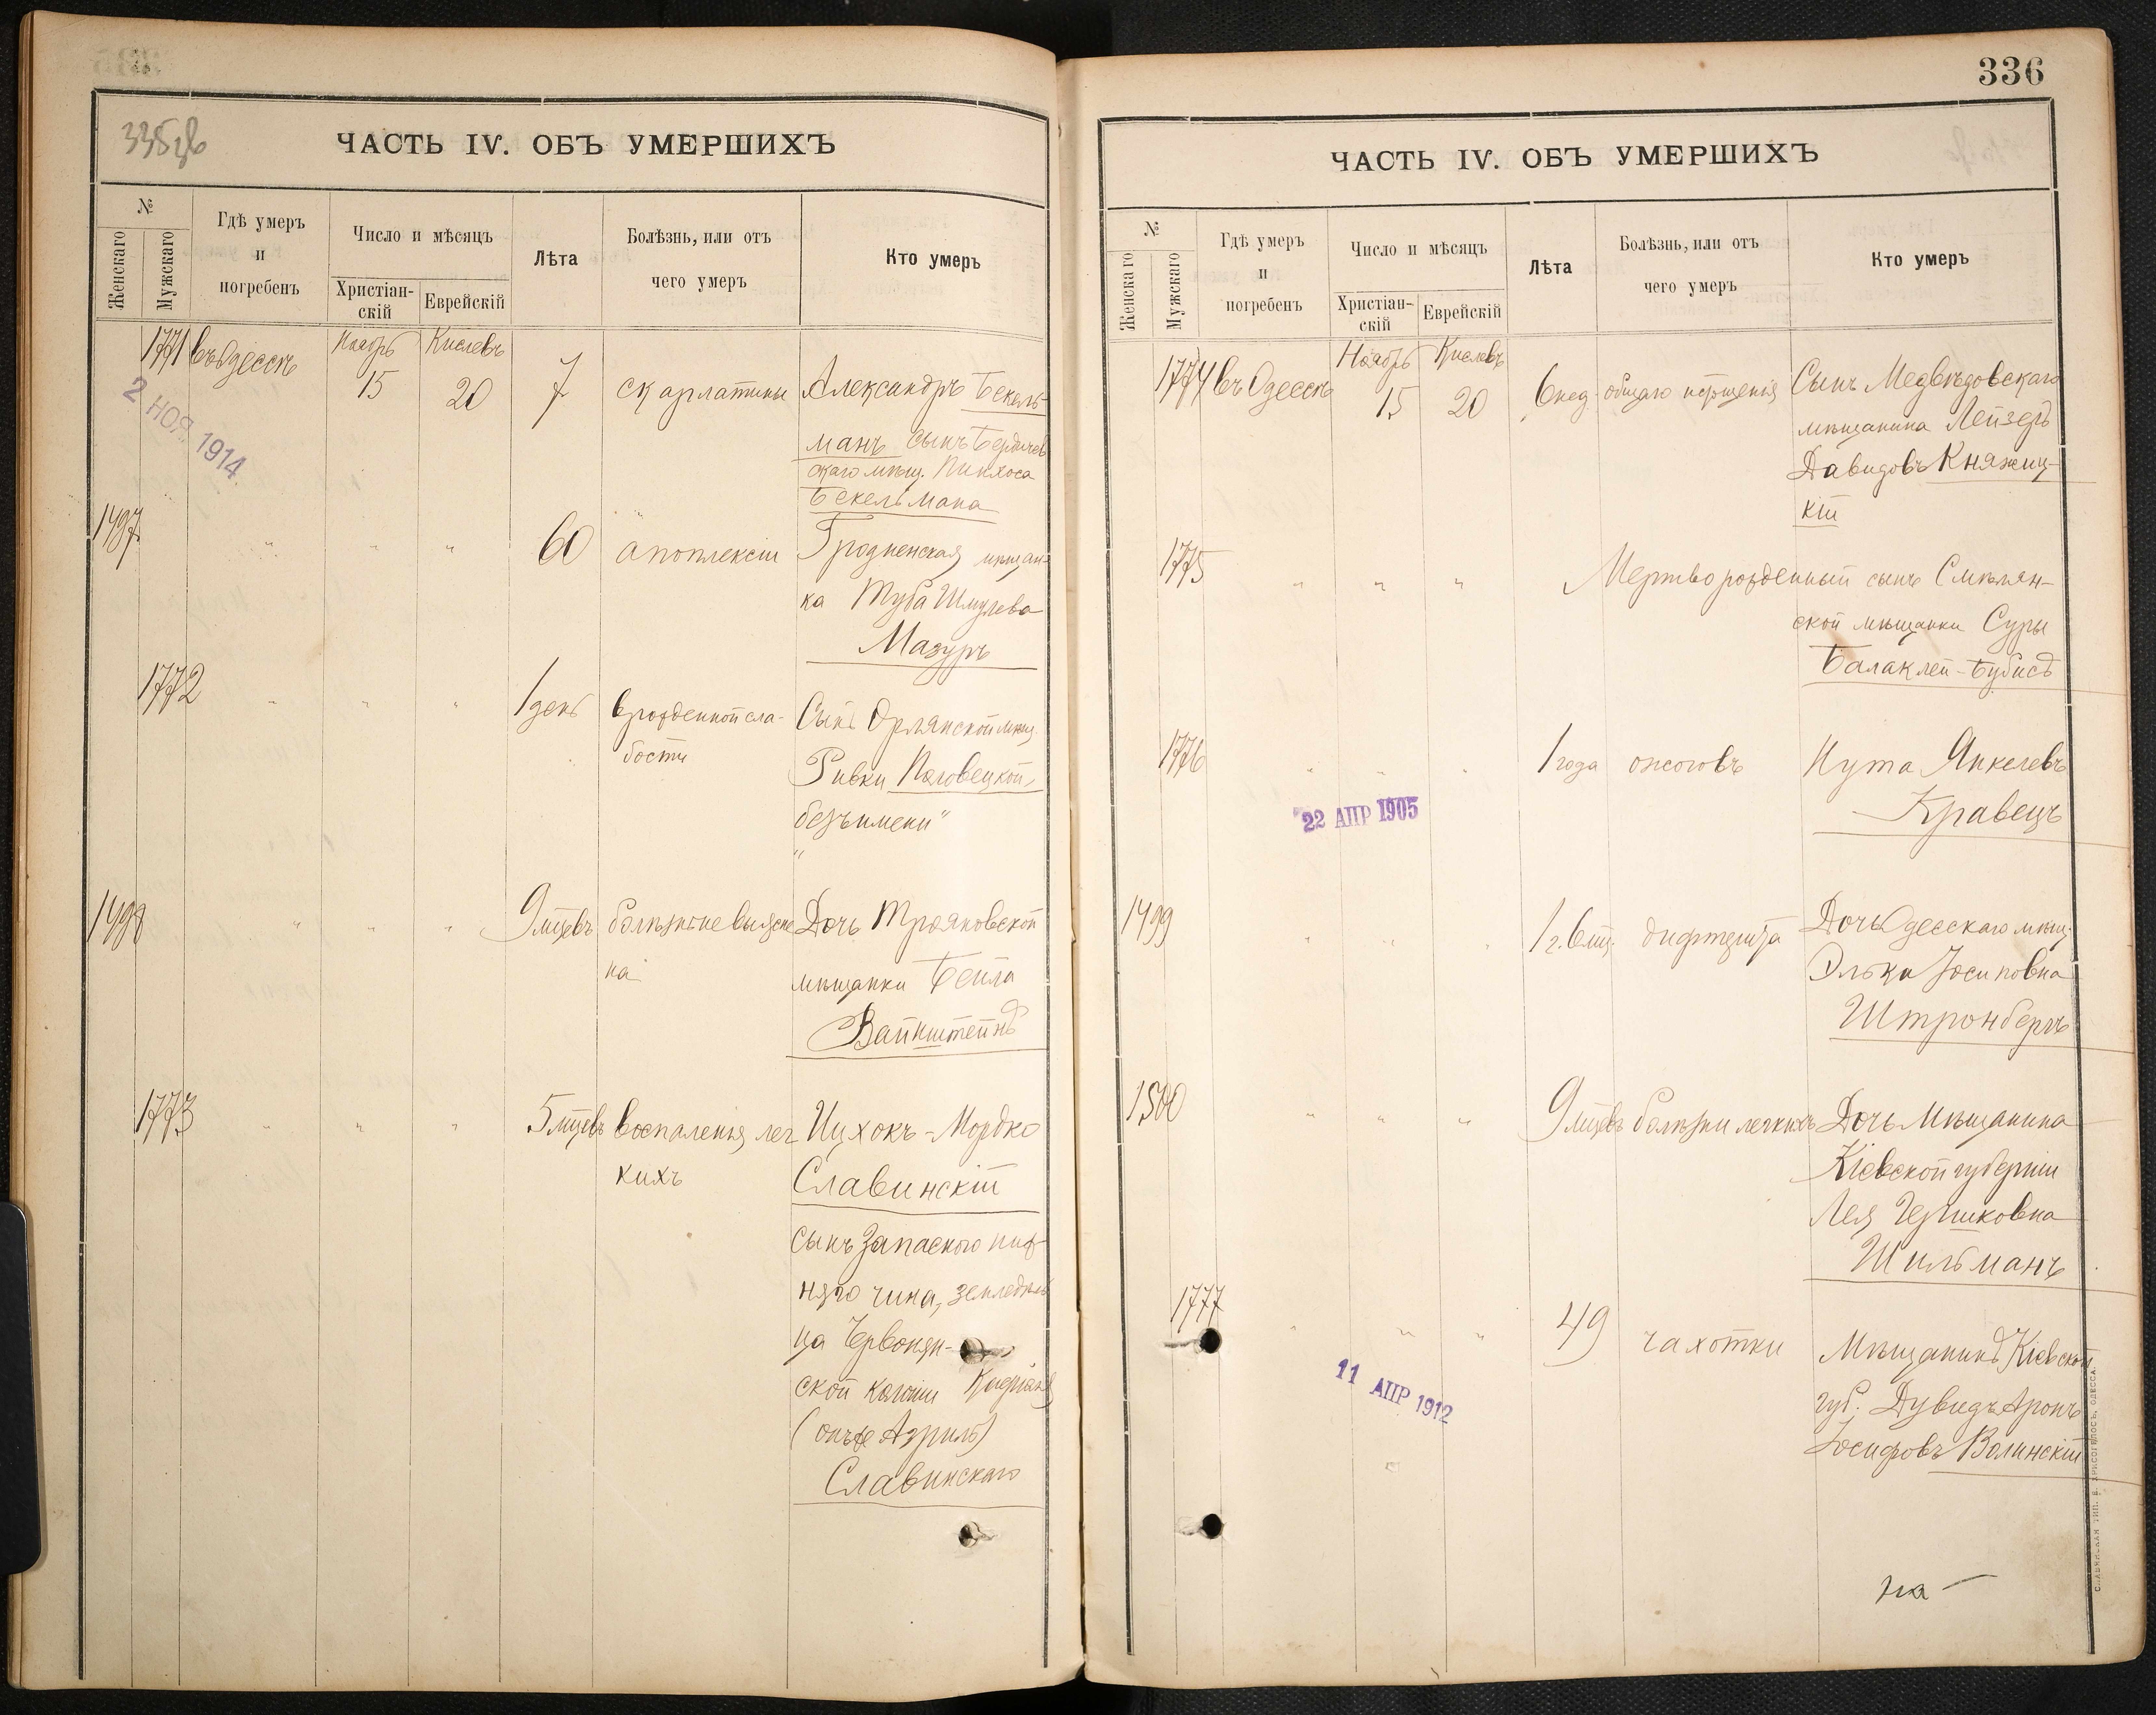 335 об
ЧАСТЬ IV. ОБЪ УМЕРШИХЪ
№
Женскаго
Мужскаго
Гдѣ умеръ
и
погребенъ
Число и мѣсяцъ
Христіан-
скій
Еврейскій
Лѣта
Болѣзнь, или отъ
чего умеръ
Кто умеръ
1771 въ Одессѣ Ноябрь 15 Кислевъ 20 7 скарлатины Александръ Бекель-
манъ сынъ Бердичев
скаго мѣщ. Пинхоса
Бекельмана
2 НОЯ. 1914
1497 " " " 60 апоплексіи Гродненская мѣщан-
ка Туба Шмулева
Мазуръ
1772 " " " 1 день врожденной сла- Сынъ Орлянской мѣщ.
бости Ривки
безъ имени"
"
1498 " " " 9 мцевъ болѣзнь не выясне Дочь Трояновской
на мѣщанки Бейла
Вайнштейнъ
1773 " " " 5 мцевъ воспаленія лег Ицхокъ-Мордко
кихъ Славинскій
сынъ Запасного ниж-
няго чина, земледѣль
ца
ской колоніи
(онъ же Азриль)
Славинскаго
336
ЧАСТЬ IV. ОБЪ УМЕРШИХЪ
№
Женскаго
Мужскаго
Гдѣ умеръ
и
погребенъ
Число и мѣсяцъ
Христіан-
скій
Еврейскій
Лѣта
Болѣзнь, или отъ
чего умеръ
Кто умеръ
1774 въ Одессѣ Ноябрь 15 Кислевъ 20 6 нед. общаго истощенія Сынъ Медвѣдовскаго
мѣщанина Лейзеръ
Давидовъ Княжиц-
кій
1775 " " " Мертворожденный сынъ Смѣлян-
ской мѣщанки Суры
Балаклей-Бубисъ
1776 " " " 1 года ожоговъ Нута Янкелевъ
Кравецъ
22 АПР 1905
1499 " " " 1 г. 6 мц. дифтерита Дочь Одесскаго мѣщ.
Элька Іосиповна
Штронбергъ
1500 " " " 9 мцевъ болѣзни легкихъ Дочь Мѣщанина
Кіевской губерніи
Лея Гершковна
Шильманъ
1777 " " " 49 чахотки Мѣщанинъ Кіевской
губ. Дувидъ Аронъ
Іосифовъ Волинскій
11 АПР 1912
на —